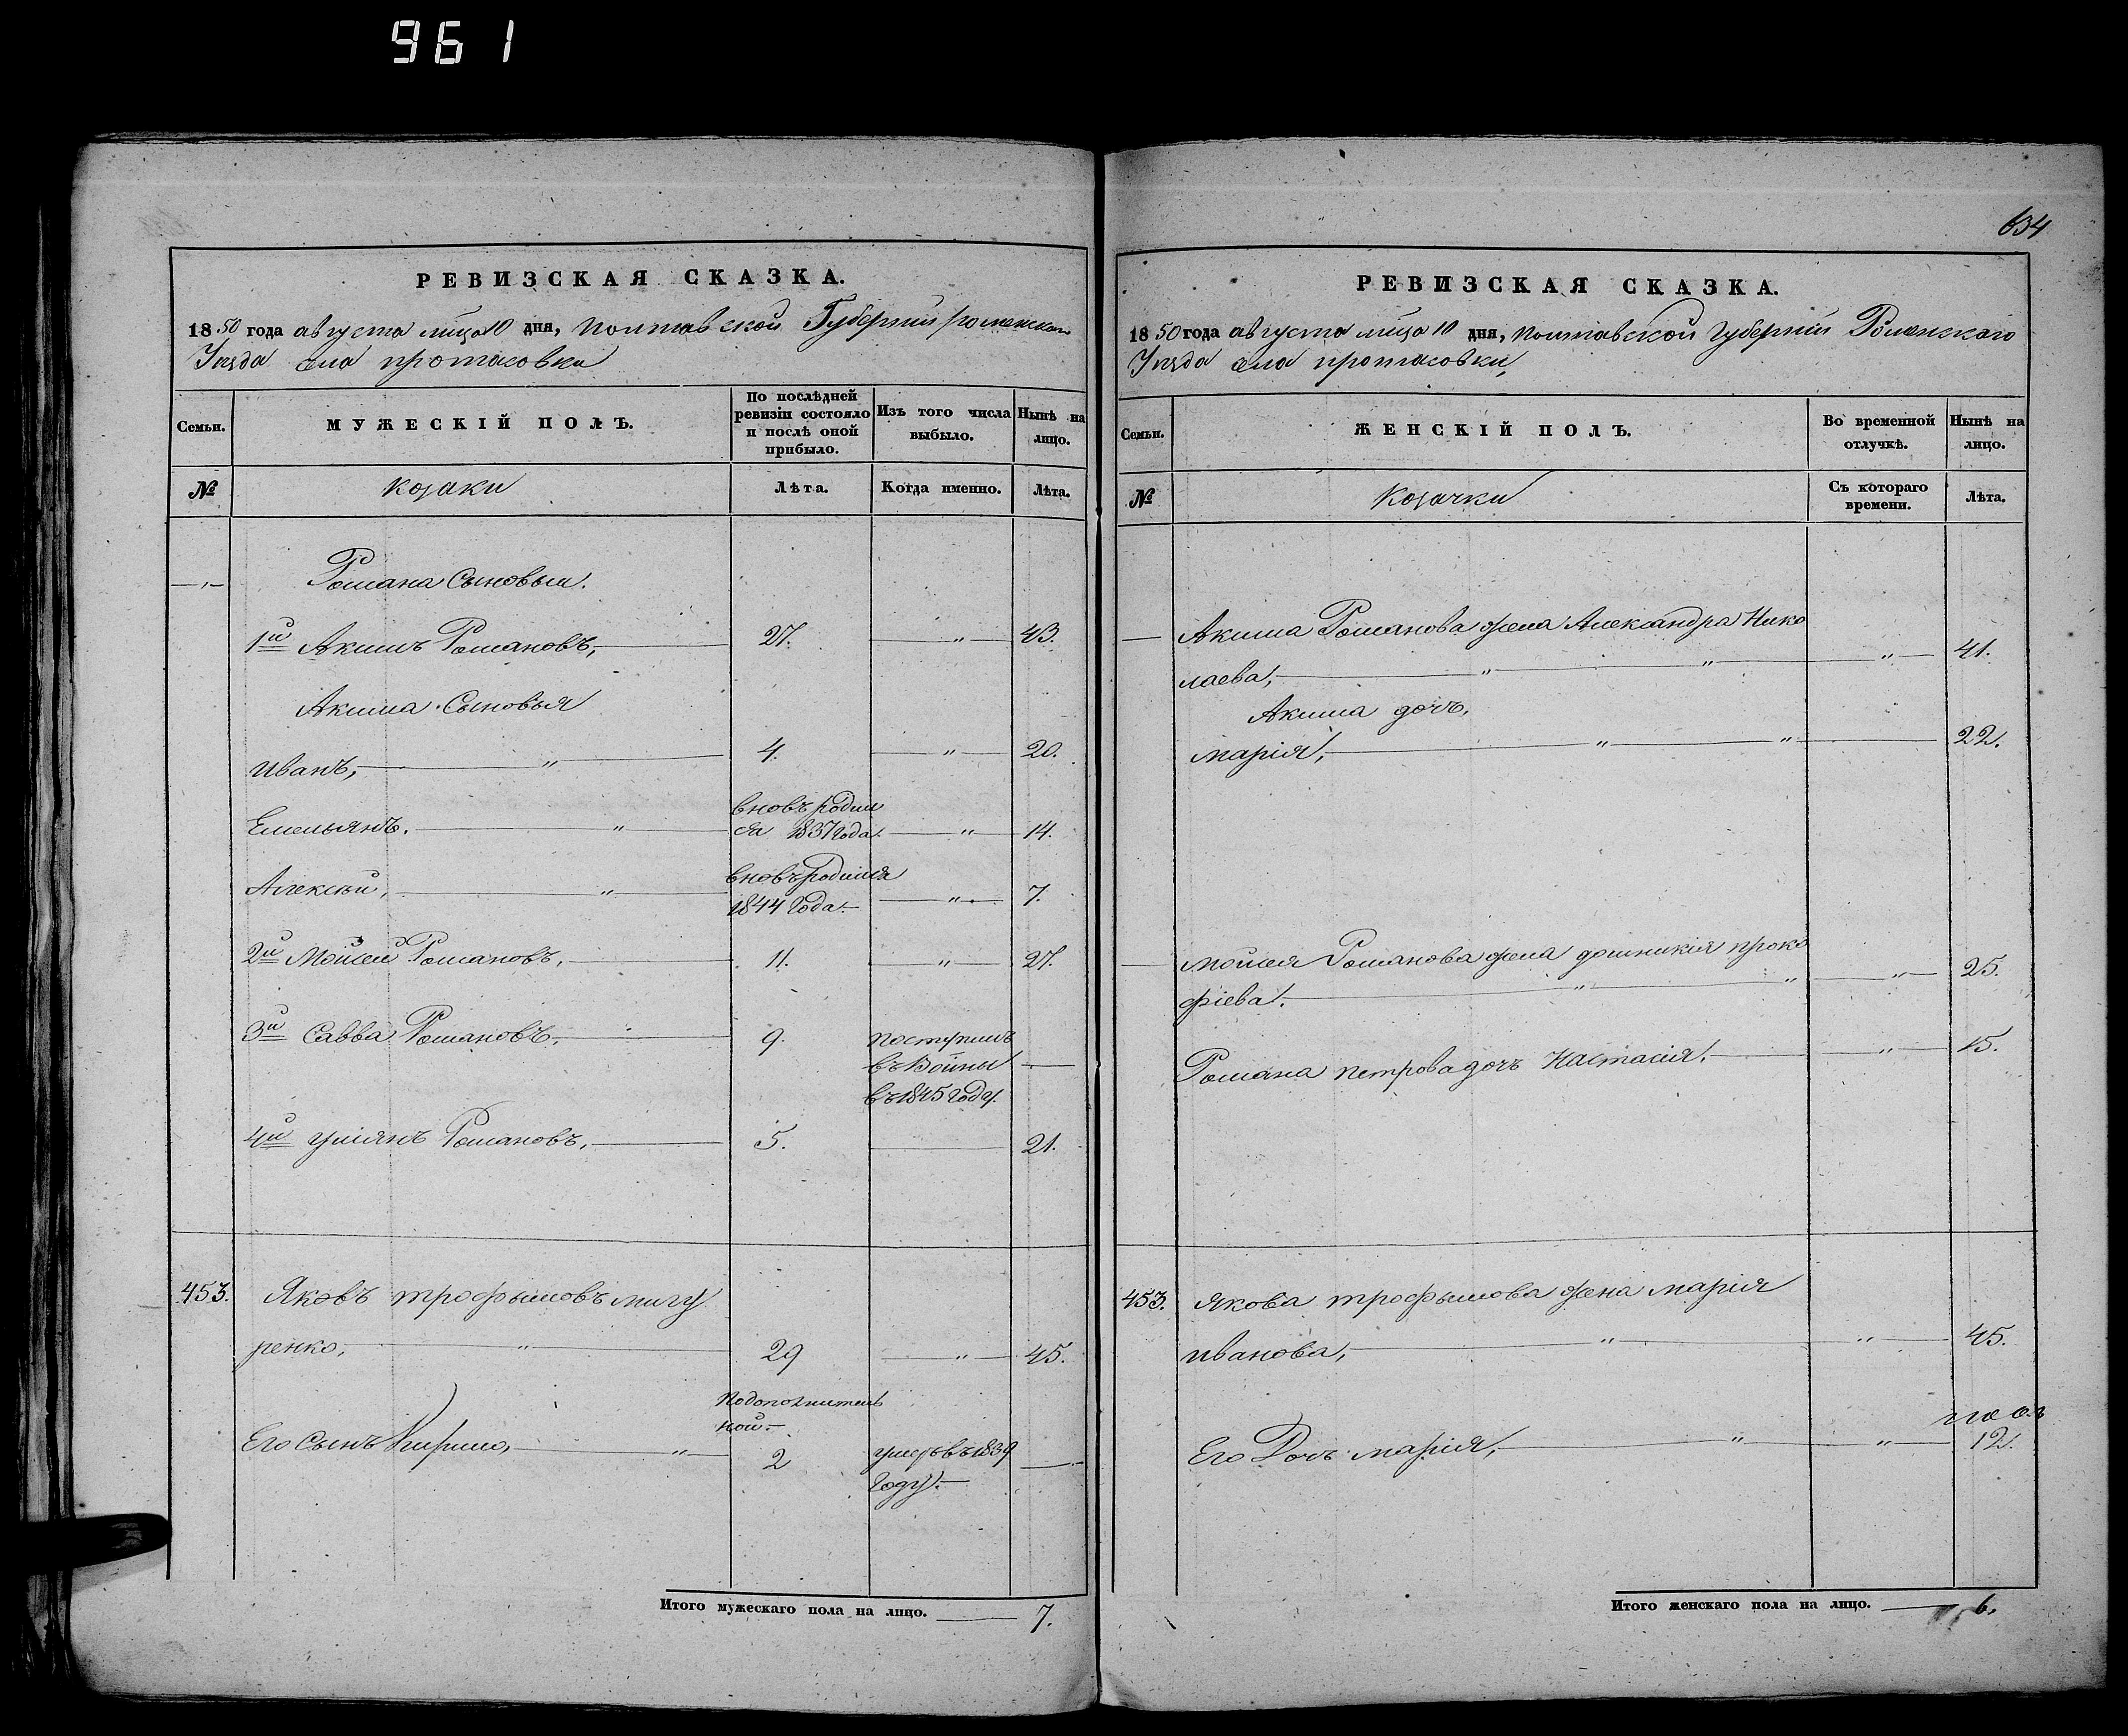 961
РЕВИЗСКАЯ СКАЗКА.
1850 года августа мѣца 10 дня, Полтавской Губерніи Роменскаго
Уѣзда села протасовки
Семьи.
МУЖЕСКІЙ ПОЛЪ.
По послѣдней
ревизіи состояло
и послѣ оной
прибыло.
Изъ того числа
выбыло.
Нынѣ на
лицо.
№
Козаки
Лѣта.
Когда именно.
Лѣта.
Романа Сыновья.
1й Акимъ Романовъ, 27. " 43.
Акима Сыновья
иванъ, " 4. " 20.
вновь родил
Емельянъ. " ся 1837 года. " 14.
вновь родился
Алексѣй, " 1844 года. " 7.
2й Мойсей Романовъ, 11. " 27.
3й Савва Романовъ, 9. поступилъ
въ Войны
въ 1845 году.
4й улиянъ Романовъ, 5. 21.
453. Яковъ трофымовъ мигу
ренко, " 29 " 45.
По дополнитель
ной
Его Сынъ Кирило, " 2 умеръ въ 1839
году.
Итого мужескаго пола на лицо. 7.
634
РЕВИЗСКАЯ СКАЗКА.
1850 года августа мѣца 10 дня, Полтавской губерніи Роменскаго
Уѣзда села протасовки,
Семьи.
ЖЕНСКІЙ ПОЛЪ.
Во временной
отлучкѣ.
Нынѣ на
лицо.
№
Козачки
Съ котораго
времени.
Лѣта.
Акима Романова жена Александра Нико
лаева, " " " 41.
Акима дочь,
марія, " " 22.
мойсея Романова жена домникія проко
фіева. " " " 25.
Романа петрова дочь Настасія. " 15.
453. Якова трофымова жена марія
иванова, " " 45.
Его Дочь марія, " " 12.
Итого женскаго пола на лицо. 6.